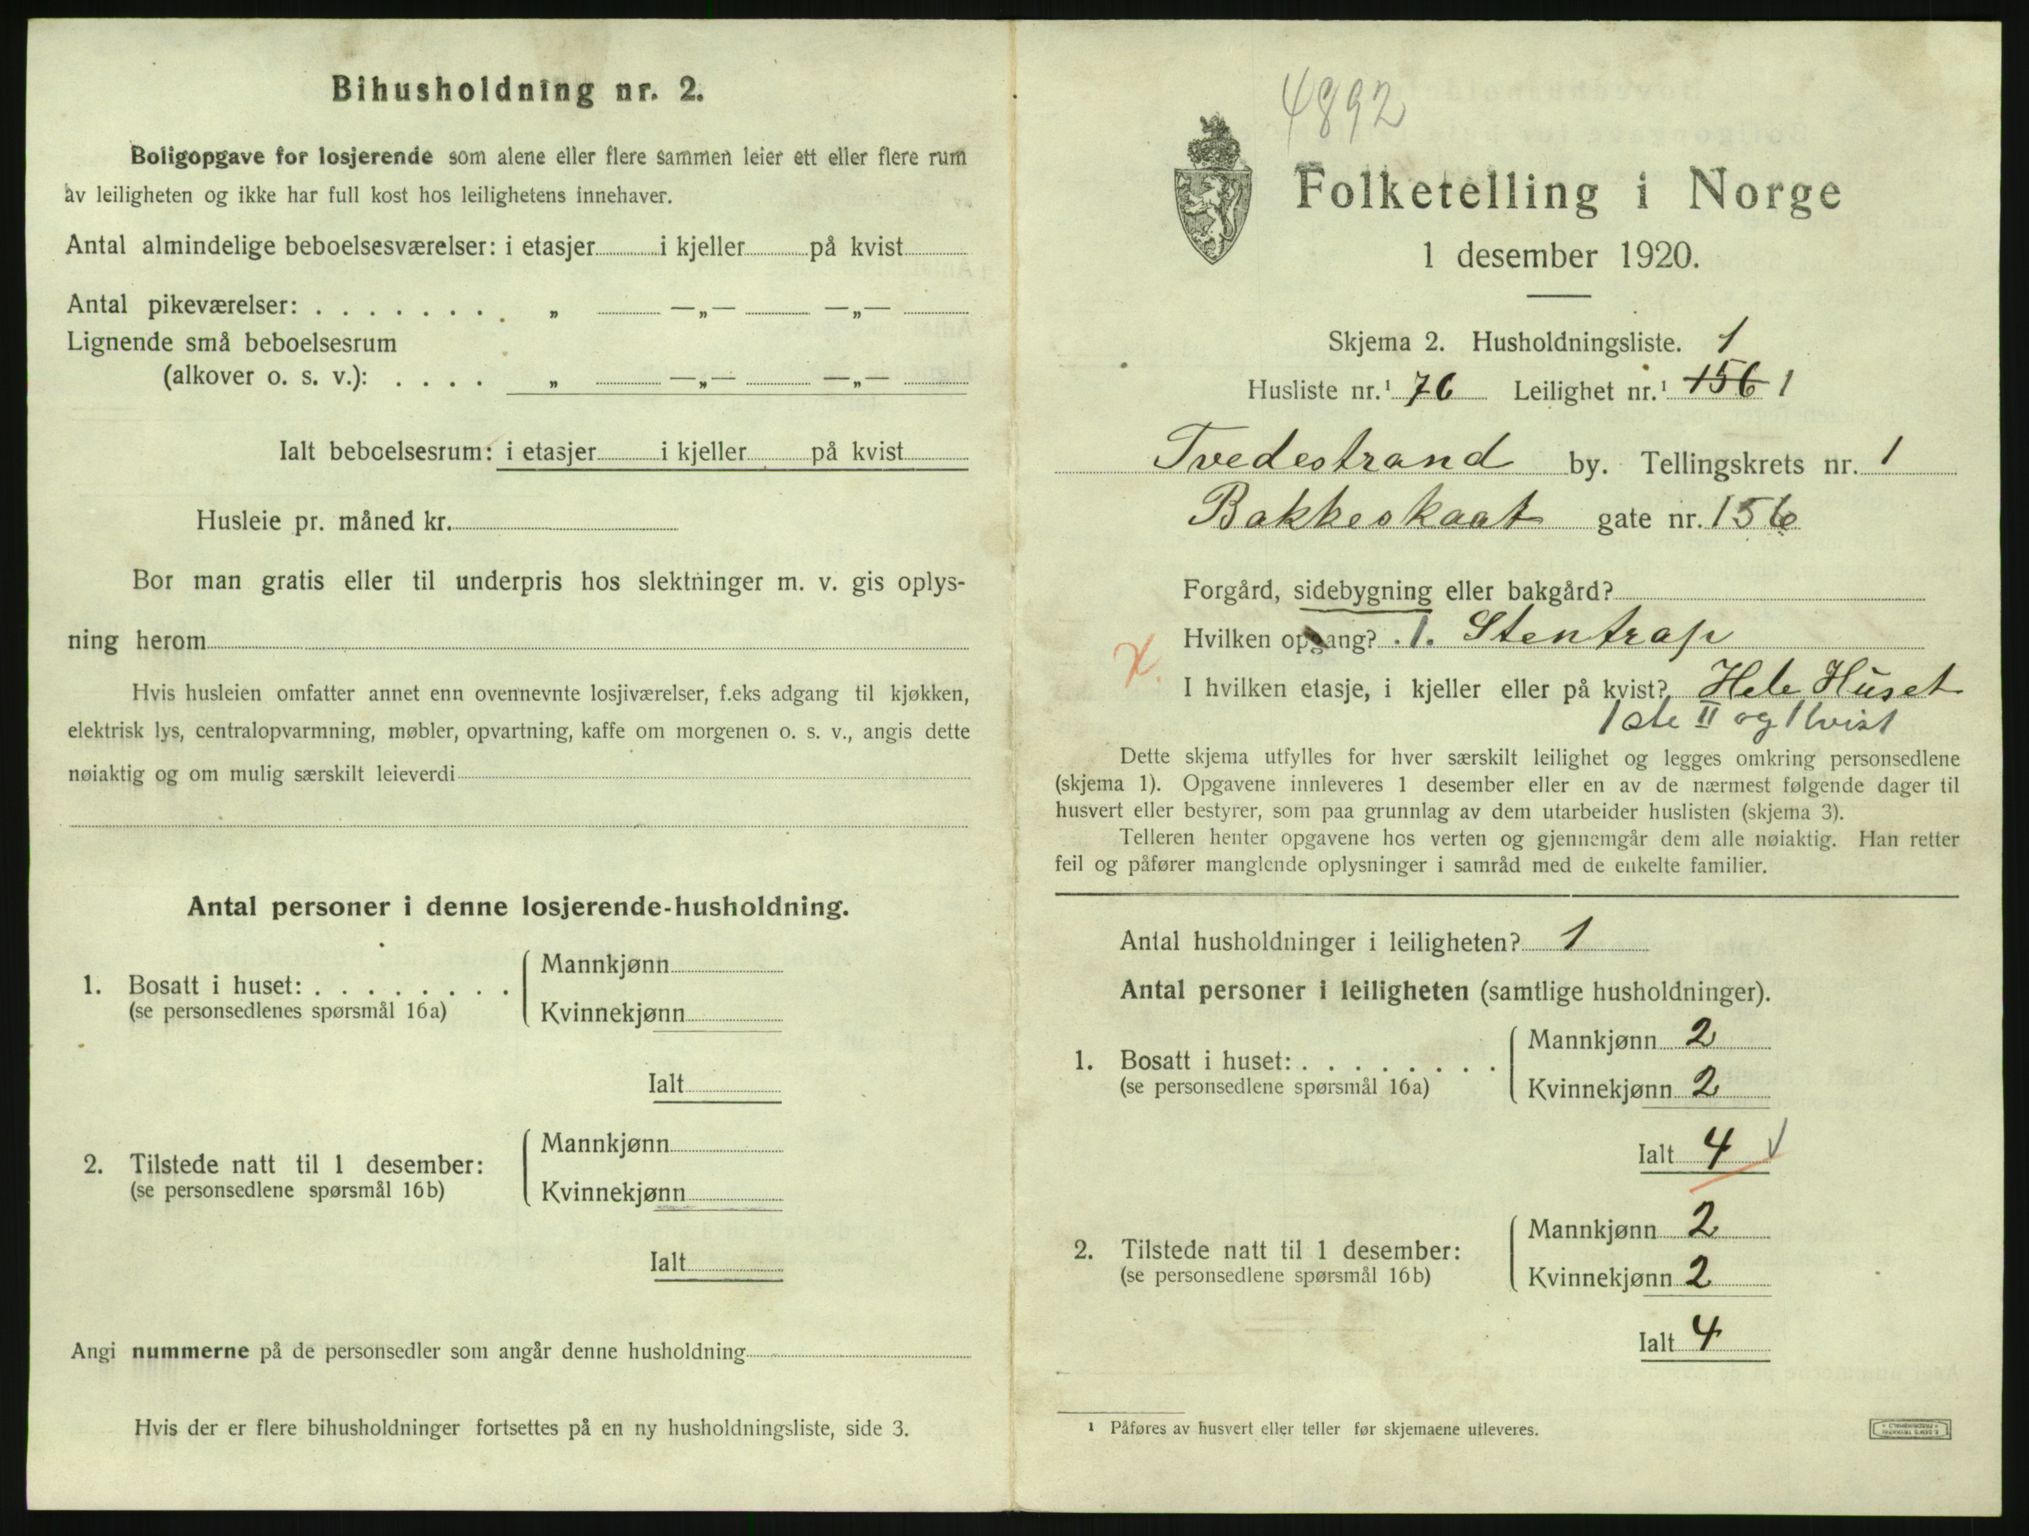 Bihusholdning nr. 2.
Boligopgave for losjerende som alene eller flere sammen leier ett eller flere rum
av leiligheten og ikke har full kost hos leilighetens innehaver.
Antal almindelige beboelsesværelser: i etasjer i kjeller på kvist
Antal pikeværelser: . . . . . . . . „ —„— —„—
Lignende små beboelsesrum
(alkover o. s. v.): . . . . „ —„— —„—
Ialt beboelsesrum: i etasjer i kjeller på kvist
Husleie pr. måned kr.
Bor man gratis eller til underpris hos slektninger m. v. gis oplys-
ning herom
Hvis husleien omfatter annet enn ovennevnte losjiværelser, f.eks adgang til kjøkken,
elektrisk lys, centralopvarmning, møbler, opvartning, kaffe om morgenen o. s. v., angis dette
nøiaktig og om mulig særskilt leieverdi
Antal personer i denne losjerende-husholdning.
1. Bosatt i huset: . . . . . . . .
(se personsedlenes spørsmål 16a)
Mannkjønn
Kvinnekjønn
Ialt
2. Tilstede natt til 1 desember:
(se personsedlene spørsmål 16b)
Mannkjønn
Kvinnekjønn
Ialt
Angi nummerne på de personsedler som angår denne husholdning
Hvis der er flere bihusholdninger fortsettes på en ny husholdningsliste, side 3.
4892
Folketelling i Norge
1 desember 1920.
Skjema 2. Husholdningsliste. 1
Husliste nr.¹ 76 Leilighet nr.¹ 156 1
Tvedestrand by. Tellingskrets nr. 1
Bakkeskaat gate nr. 156
Forgård, sidebygning eller bakgård?
Hvilken opgang? 1. Stentrap
I hvilken etasje, i kjeller eller på kvist? Hele Huset
1ste II og Kvist
Dette skjema utfylles for hver særskilt leilighet og legges omkring personsedlene
(skjema 1). Opgavene innleveres 1 desember eller en av de nærmest følgende dager til
husvert eller bestyrer, som paa grunnlag av dem utarbeider huslisten (skjema 3).
Telleren henter opgavene hos verten og gjennemgår dem alle nøiaktig. Han retter
feil og påfører manglende oplysninger i samråd med de enkelte familier.
Antal husholdninger i leiligheten? 1
Antal personer i leiligheten (samtlige husholdninger).
1. Bosatt i huset: . . . . . . . .
(se personsedlene spørsmål 16a)
Mannkjønn 2
Kvinnekjønn 2
Ialt 4
2. Tilstede natt til 1 desember:
(se personsedlene spørsmål 16b)
Mannkjønn 2
Kvinnekjønn 2
Ialt 4
¹ Påføres av husvert eller teller før skjemaene utleveres.